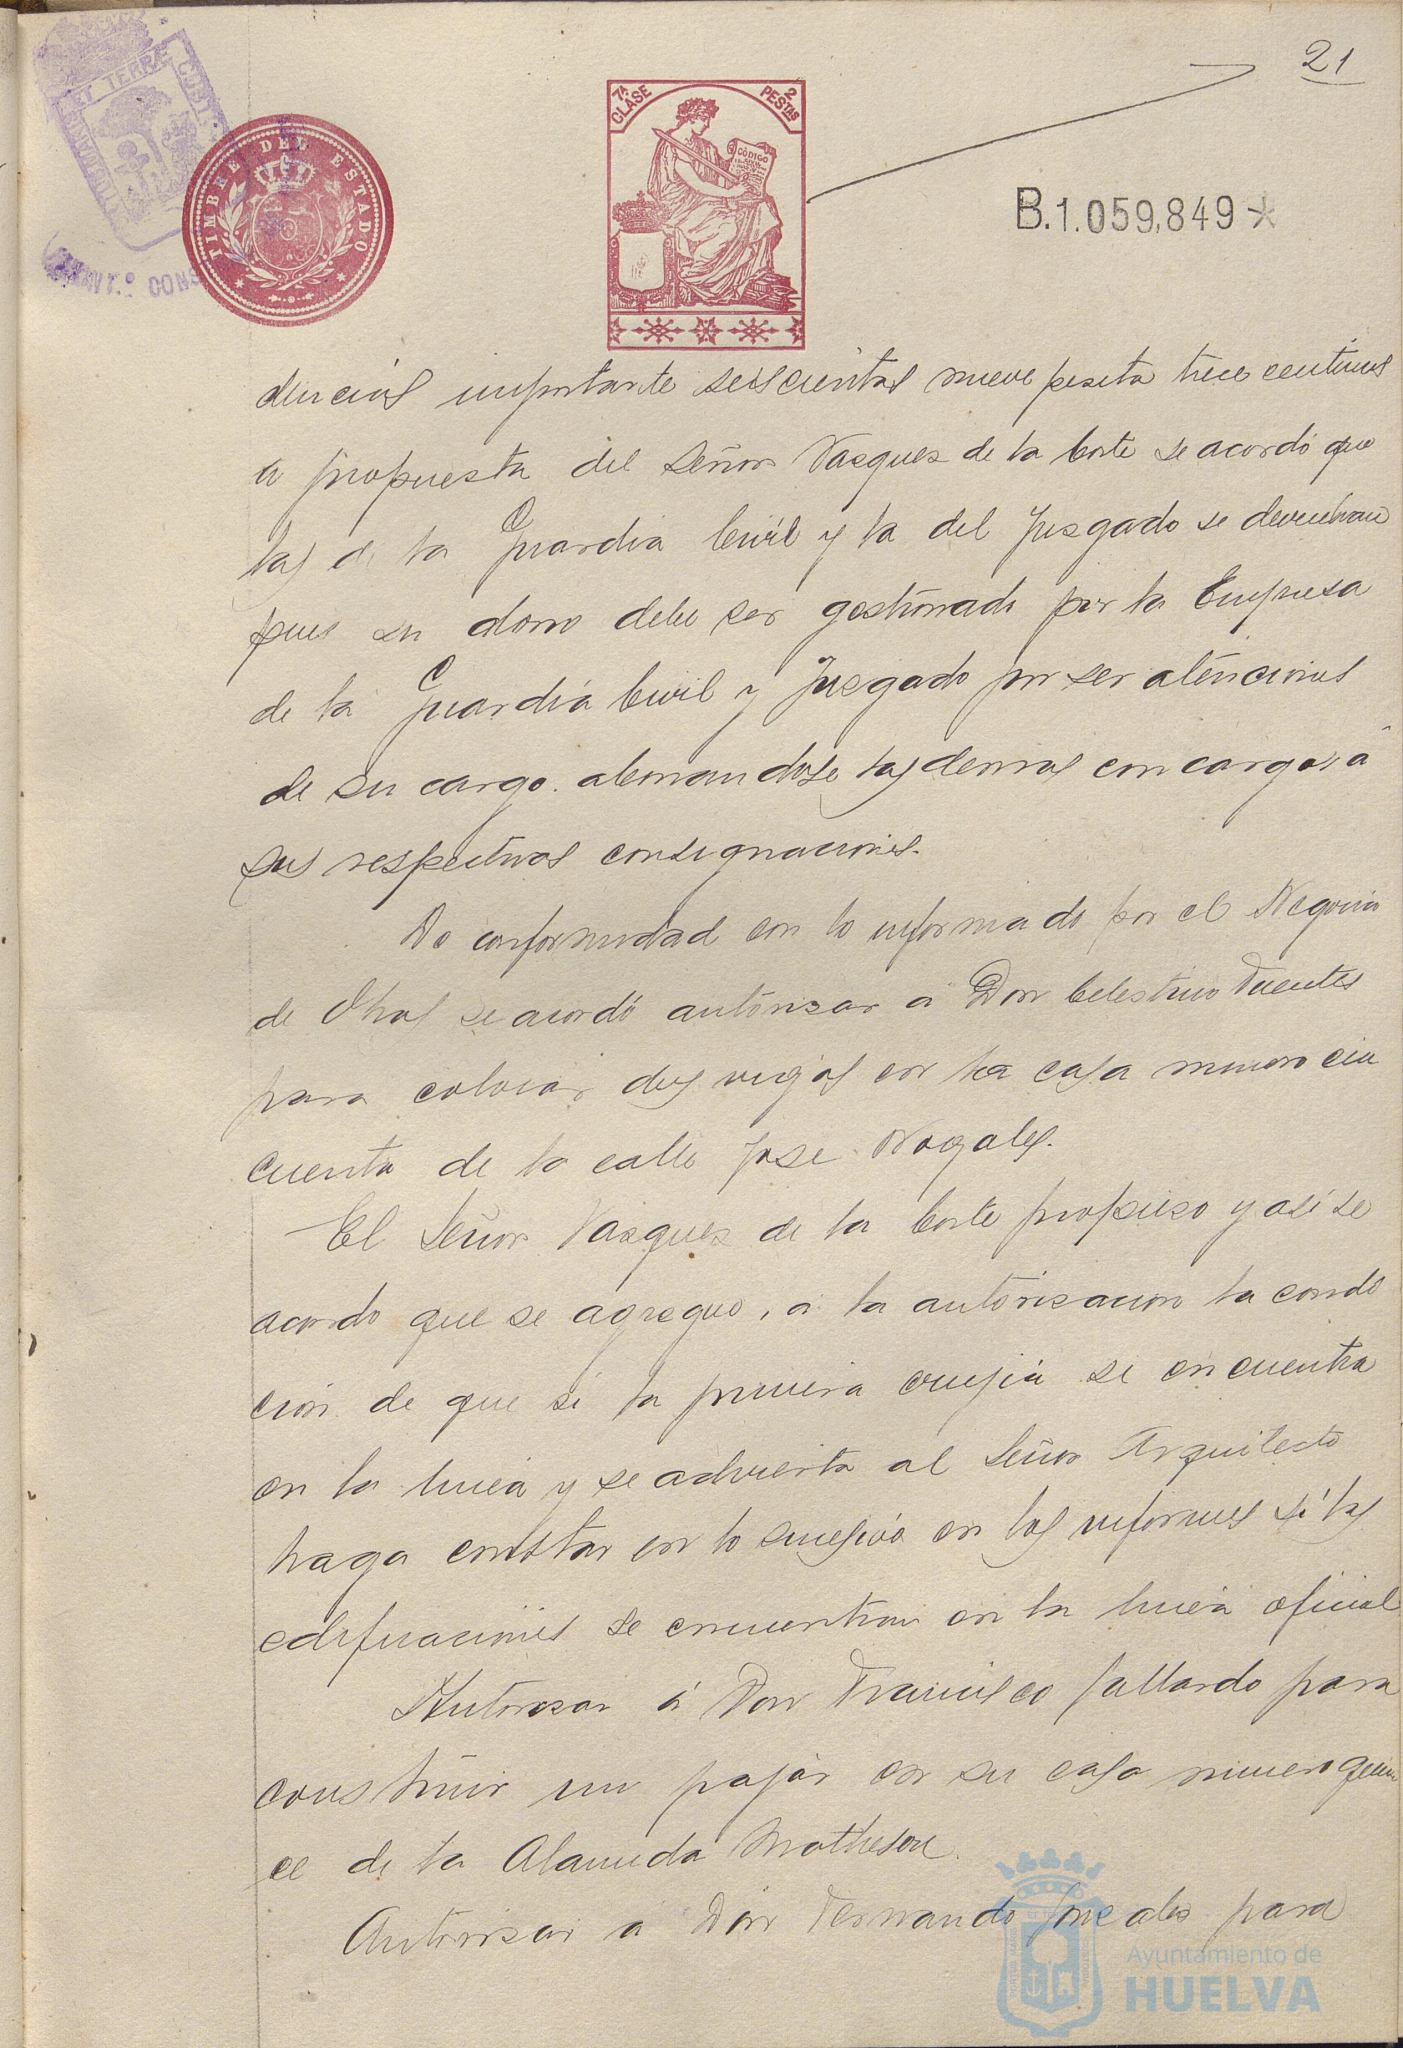 21
7ª CLASE
2 PESTAS
CÓDIGO
TIMBRE DEL ESTADO
B.1.059,849
dencias importante seiscientas nueve peseta trece centimos
a propuesta del Señor Vasques de la Corte se acordó que
las de la Guardia Civil y la del Jusgado se devuelvan
pues su abono debe ser gestionado por la Empresa
de la Guardia Civil y Jusgado por ser atenciones
de su cargo. abonandose las demas con cargo á
sus respectivas consignaciones.
De conformidad con lo informado por el Negocia
de Obras se acordó autorisar á Don Celestino Fuentes
para colocar dos vigas en la casa numero cin
cuenta de la calle Jose Nogales.
El Señor Vasques de la Corte propuso y asi se
acordo que se agregue, a la autorisacion la condi
ción de que si la primera crujia se encuentra
en la linea y se advierta al Señor Arquitecto
haga constar en lo sucesivo en los informes si las
edificaciones se encuentran en la linea oficial
Autorisar á Don Francisco Gallardo para
construir un pajar en su casa numero quin
ce de la Alameda Matheson.
Autorisar a Don Fernando Gonsales para
Ayuntamiento de
HUELVA